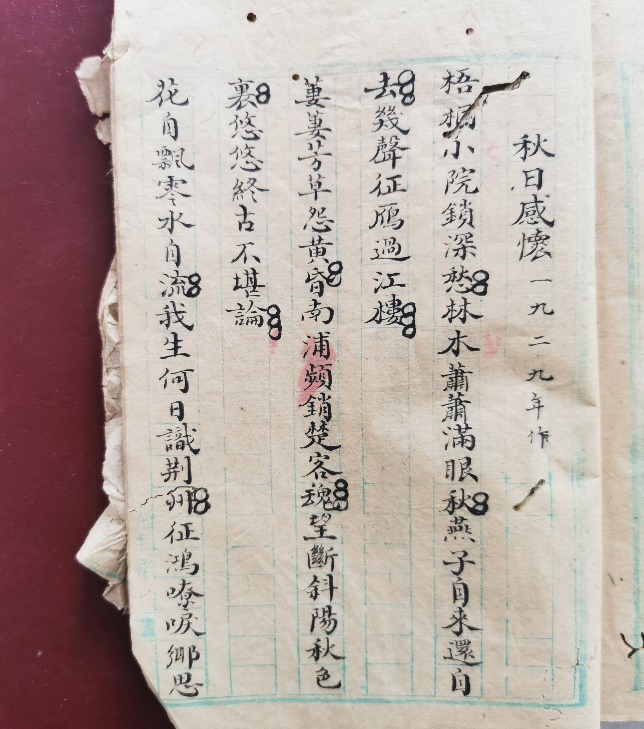 秋日感懷 一九二九年作
梧桐小院鎖深愁林木蕭蕭滿眼秋燕子自來還自
去幾聲征雁過江樓
萋萋芳草怨黃昏南浦頻銷楚客魂望斷斜陽秋色
裏悠悠終古不堪論
花自飄零水自流我生何日識荆州征鴻嘹唳鄉思